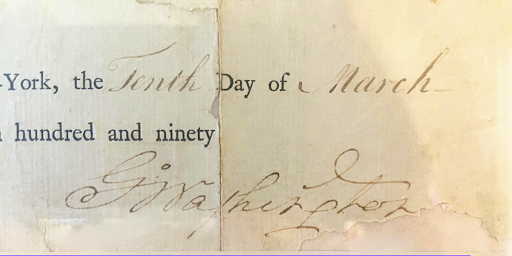 -York, the Tenth Day of March
hundred and ninety
G:Washington